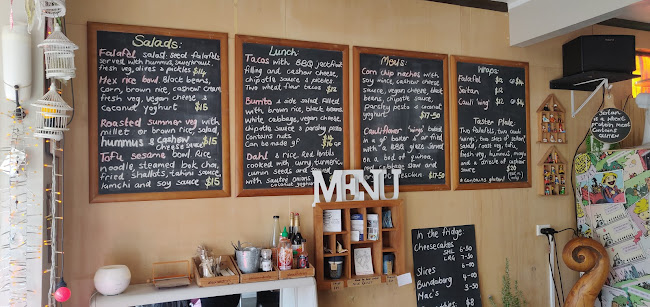 Salads:
Falafel salad: seed falafels
served with hummus, sauerkraut
fresh veg, olives & pickles $14
Mex rice bowl. Black beans,
corn, brown rice, cashew cream
fresh veg, vegan cheese &
coconut yoghurt $15
Roasted summer veg with
millet or brown rice, salad,
hummus & cashew
cheese sauce $15
Tofu sesame bowl. Rice
noodle steamed bok choi,
fried shallots, tahini sauce,
kimchi and soy sauce $15
Lunch:
Tacos with BBQ jackfruit
filling and cashew cheese,
chipotle sauce & pickles.
Two wheat flour tacos $12
Burrito & side salad filled
with brown rice, black beans,
white cabbage, vegan cheese,
chipotle sauce and parsley pesto
Contains nuts $14
Can be made gf $16 GF
Dahl & rice. Red lentils
cooked with curry, turmeric,
cumin seeds and
with sauteed onions
coconut yoghurt
Meals:
Corn chip nachos with
soy mince, cashew cheese
sauce, vegan cheese, black
beans, chipotle sauce,
parsley pesto & coconut
yoghurt $17-50
Cauliflower 'wings' baked
in a gf batter &
& BBQ vegan cheese
on a bed of quinoa,
rainbow slaw and
$17-50
Wraps:
Falafel $12
Seitan $12
Cauli 'wing' $12
Taster Plate
Two falafels, two cauli
wings, two slices of seitan
salad, roast veg, tofu,
fresh veg, hummus, mayo
and a drizzle of cashew
cream. $20
& contains gluten
MENU
In the fridge:
Cheesecakes SML 6-50
LRG
Slices
Bundaberg
Mac's
Seitan
is wheat
Protein meat
Contains
Gluten